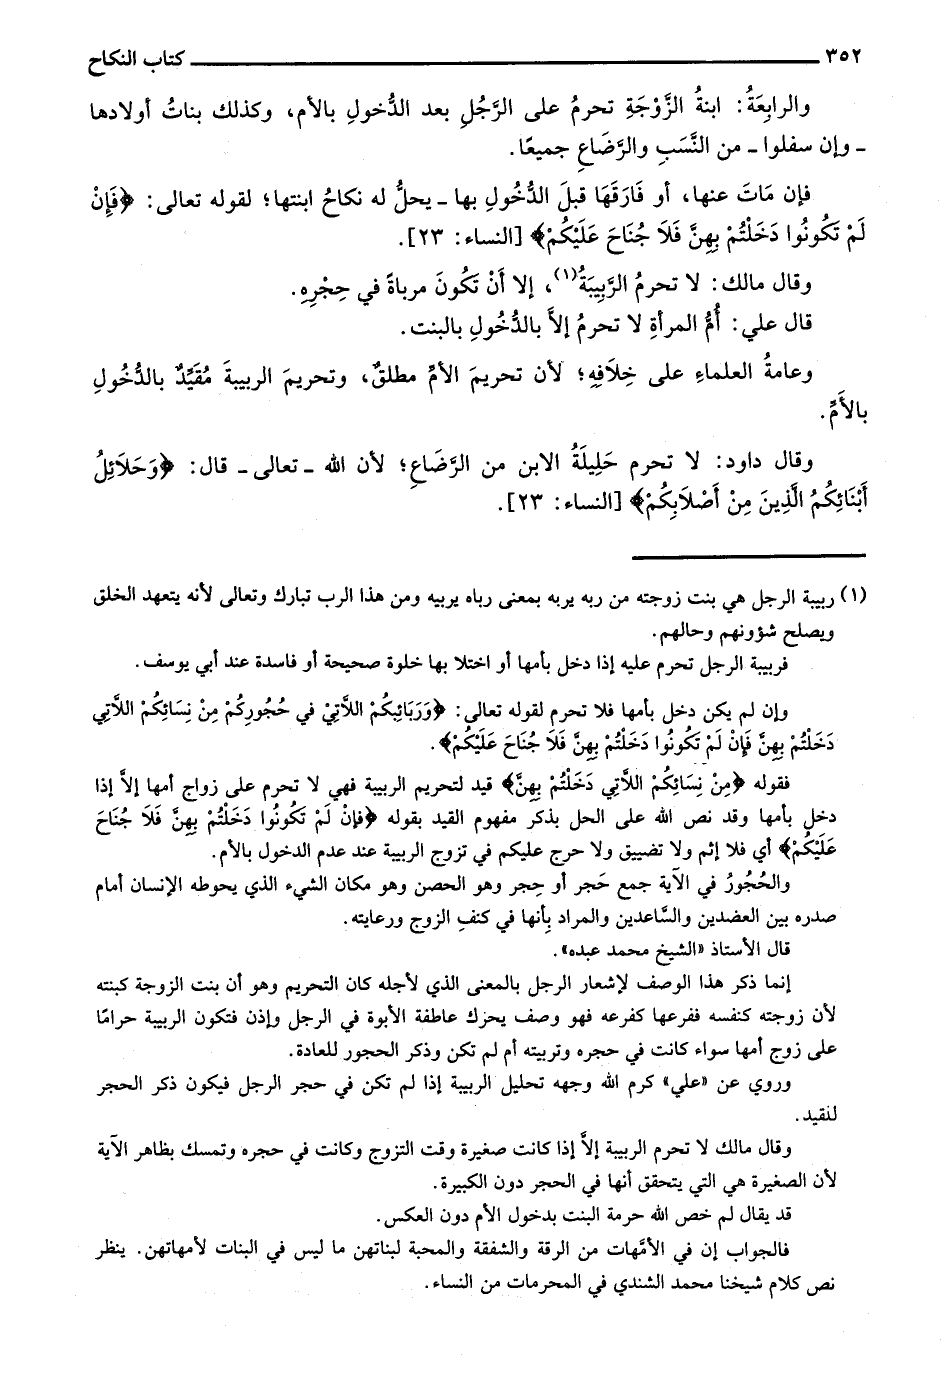 ٣٥٢ كتاب النكاح
والرابِعَةُ: ابنةُ الزَّوْجَةِ تحرمُ على الرَّجُلِ بعد الدُّخولِ بالأم، وكذلك بناتُ أولادها
ـ وإن سفلوا ـ من النَّسَبِ والرَّضَاعِ جميعًا.
فإن مَاتَ عنها، أو فَارَقَهَا قبلَ الدُّخُولِ بها ـ يحلُّ له نكاحُ ابنتها؛ لقوله تعالى: ﴿فَإِنْ
لَمْ تَكُونُوا دَخَلْتُمْ بِهِنَّ فَلَا جُنَاحَ عَلَيْكُمْ﴾ [النساء: ٢٣].
وقال مالك: لا تحرمُ الرَّبِيبَةُ(١)، إلا أَنْ تَكُونَ مرباةً في حِجْرِهِ.
قال علي: أُمُّ المرأةِ لا تحرمُ إلاَّ بالدُّخُولِ بالبنت.
وعامةُ العلماءِ على خِلَافِهِ؛ لأن تحريمَ الأمِّ مطلقٌ، وتحريمَ الربيبةَ مُقَيَّدٌ بالدُّخُولِ
بالأَمِّ.
وقال داود: لا تحرم حَلِيلَةُ الابن من الرَّضَاعِ؛ لأن الله ـ تعالى ـ قال: ﴿وَحَلَائِلُ
أَبْنَائِكُمُ الَّذِينَ مِنْ أَصْلَابِكُمْ﴾ [النساء: ٢٣].
(١) ربيبة الرجل هي بنت زوجته من ربه يربه بمعنى رباه يربيه ومن هذا الرب تبارك وتعالى لأنه يتعهد الخلق
ويصلح شؤونهم وحالهم.
فربيبة الرجل تحرم عليه إذا دخل بأمها أو اختلا بها خلوة صحيحة أو فاسدة عند أبي يوسف.
وإن لم يكن دخل بأمها فلا تحرم لقوله تعالى: ﴿وَرَبَائِبُكُمْ اللاَّتِيْ في حُجُورِكُمْ مِنْ نِسَائِكُمْ اللاَّتِي
دَخَلْتُمْ بِهِنَّ فَإِنْ لَمْ تَكُونُوا دَخَلْتُمْ بِهِنَّ فَلَا جُنَاحَ عَلَيْكُمْ﴾.
فقوله ﴿مِنْ نِسَائِكُمْ اللاَّتِي دَخَلْتُمْ بِهِنَّ﴾ قيد لتحريم الربيبة فهي لا تحرم على زواج أمها إلاَّ إذا
دخل بأمها وقد نص الله على الحل بذكر مفهوم القيد بقوله ﴿فإنْ لَمْ تَكُونُوا دَخَلْتُمْ بِهِنَّ فَلَا جُنَاحَ
عَلَيْكُمْ﴾ أي فلا إثم ولا تضييق ولا حرج عليكم في تزوج الربيبة عند عدم الدخول بالأم.
والحُجُورُ في الآية جمع حَجر أو حِجر وهو الحصن وهو مكان الشيء الذي يحوطه الإنسان أمام
صدره بين العضدين والسَّاعدين والمراد بأنها في كنفِ الزوج ورعايته.
قال الأستاذ «الشيخ محمد عبده».
إنما ذكر هذا الوصف لإشعار الرجل بالمعنى الذي لأجله كان التحريم وهو أن بنت الزوجة كبنته
لأن زوجته كنفسه ففرعها كفرعه فهو وصف يحرك عاطفة الأبوة في الرجل وإذن فتكون الربيبة حرامًا
على زوج أمها سواء كانت في حجره وتربيته أم لم تكن وذكر الحجور للعادة.
وروي عن «علي» كرم الله وجهه تحليل الربيبة إذا لم تكن في حجر الرجل فيكون ذكر الحجر
للقيد.
وقال مالك لا تحرم الربيبة إلاَّ إذا كانت صغيرة وقت التزوج وكانت في حجره وتمسك بظاهر الآية
لأن الصغيرة هي التي يتحقق أنها في الحجر دون الكبيرة.
قد يقال لم خص الله حرمة البنت بدخول الأم دون العكس.
فالجواب إن في الأمَّهات من الرقة والشفقة والمحبة لبناتهن ما ليس في البنات لأمهاتهن. ينظر
نص كلام شيخنا محمد الشندي في المحرمات من النساء.